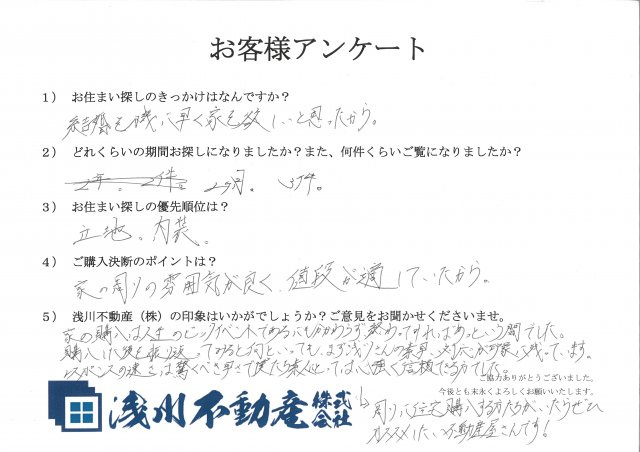 お客様アンケート
1） お住まい探しのきっかけはなんですか？
結婚を機に早く家を欲しいと思ったから。
2） どれくらいの期間お探しになりましたか？また、何件くらいご覧になりましたか？
2年。 2件。 2ヶ月。 3件。
3） お住まい探しの優先順位は？
立地。内装。
4） ご購入決断のポイントは？
家の周りの雰囲気が良く、値段が適していたから。
5） 浅川不動産（株）の印象はいかがでしょうか？ご意見をお聞かせくださいませ。
家の購入は人生のビッグイベントであるにもかかわらず終わってみればあっという間でした。
購入した後を振り返ってみると何といっても、まず浅川さんの素早い対応が印象に残っています。
レスポンスの速さは驚くべき事で僕たち素人にとっては心強く信頼できる方でした。
ご協力ありがとうございました。
今後とも末永くよろしくお願いいたします。
周りに住宅購入する方たちがいたらぜひ
オススメしたい不動産屋さんです！
浅川不動産株式会社